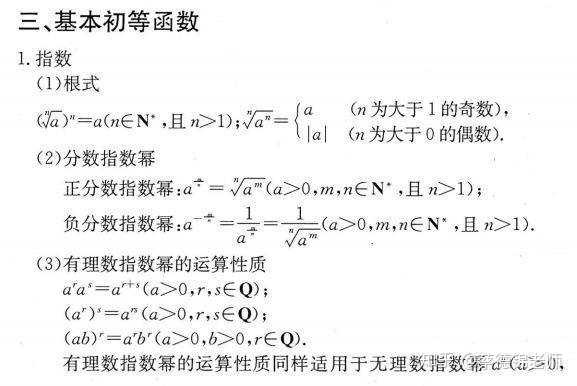 三、基本初等函数
1. 指数
(1)根式
(ⁿ√a)ⁿ=a(n∈N*,且 n>1); ⁿ√aⁿ={ a (n 为大于 1 的奇数), |a| (n 为大于 0 的偶数).
(2)分数指数幂
正分数指数幂:a^(m/n)=ⁿ√aᵐ(a>0,m,n∈N*,且 n>1);
负分数指数幂:a^(-m/n)=1/a^(m/n)=1/ⁿ√aᵐ(a>0,m,n∈N*,且 n>1).
(3)有理数指数幂的运算性质
aʳaˢ=aʳ⁺ˢ(a>0,r,s∈Q);
(aʳ)ˢ=aʳˢ(a>0,r,s∈Q);
(ab)ʳ=aʳbʳ(a>0,b>0,r∈Q).
有理数指数幂的运算性质同样适用于无理数指数幂